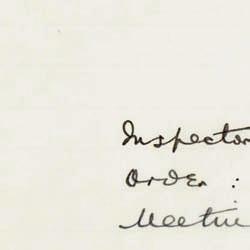 Inspector
Order :
Meetin